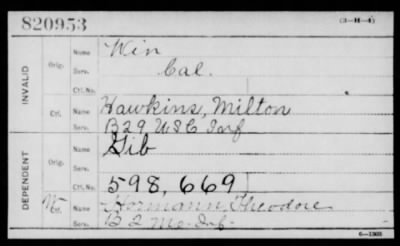 820953
(3-H-4)
INVALID
Orig.
Name Win
Serv. Cal.
Ctf. No.
Ctf.
Name Hawkins, Milton
Serv. B 29 U S C Inf
DEPENDENT
Orig.
Name Gib
Serv.
Ctf. No. 598,669
Ctf.
Name Hormann, Theodore
Serv. B 2 Mo. Inf.